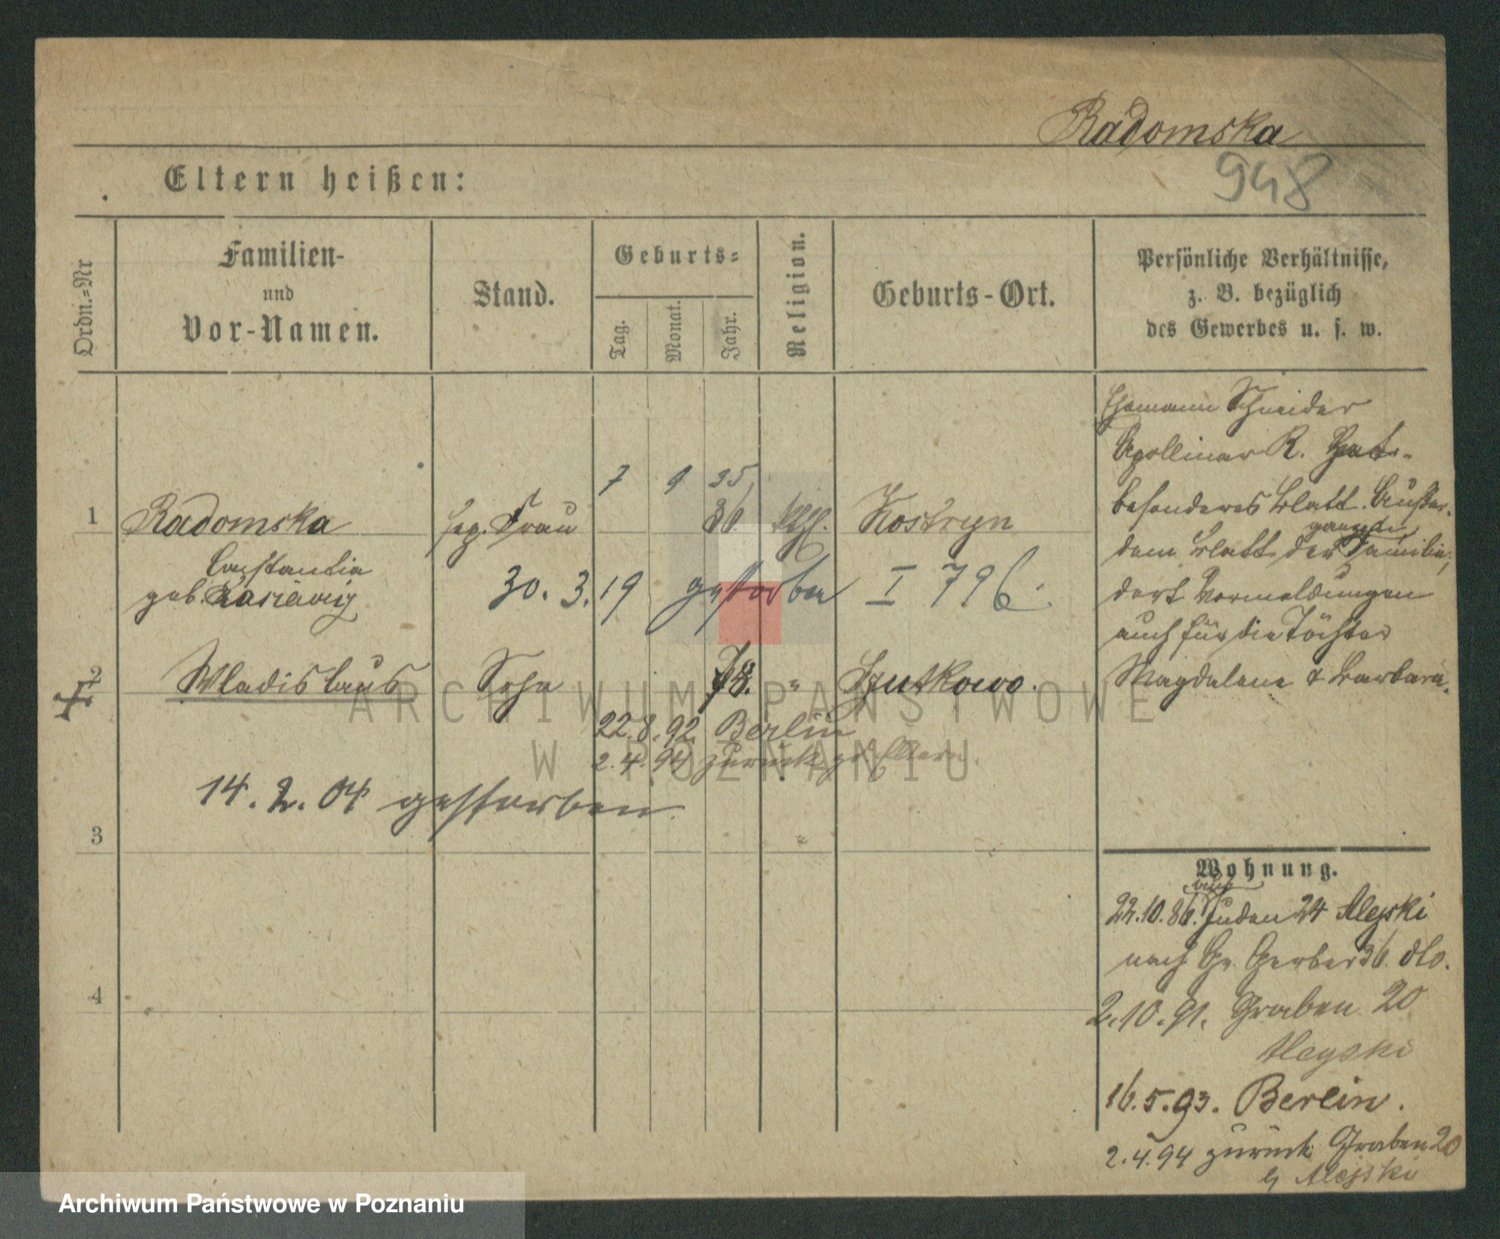 Radomska
948
Eltern heißen:
Ordn.-Nr
Familien-
und
Vor-Namen.
Stand.
Geburts-
Tag.
Monat.
Jahr.
Religion.
Geburts-Ort.
Persönliche Verhältnisse,
z. B. bezüglich
des Gewerbes u. s. w.
Ehemann Schneider
Apollinar R. Hat
besonderes Blatt. Außer-
dem Blatt der Familie,
dort Vermeldungen
auch für die Töchter
Magdalena & Barbara.
7 9 35
1 Radomska sep. Frau 36 kth. Kostryn
Constantia
geb.
30. 3. 19 gestorben I 796.
2 Wladislaus Sohn 78. "
22.8.92 Berlin
2.4.94 zurück
14.2.04 gestorben
3
4
Wohnung.
22.10.86. Juden 24 Alejski
nach Gr. Gerber 36. dto.
2.10.91. Graben 20
Alejski
16.5.93. Berlin.
2.4.94 zurück Graben 20
b/ Alejski
ARCHIWUM PAŃSTWOWE
W POZNANIU
Archiwum Państwowe w Poznaniu